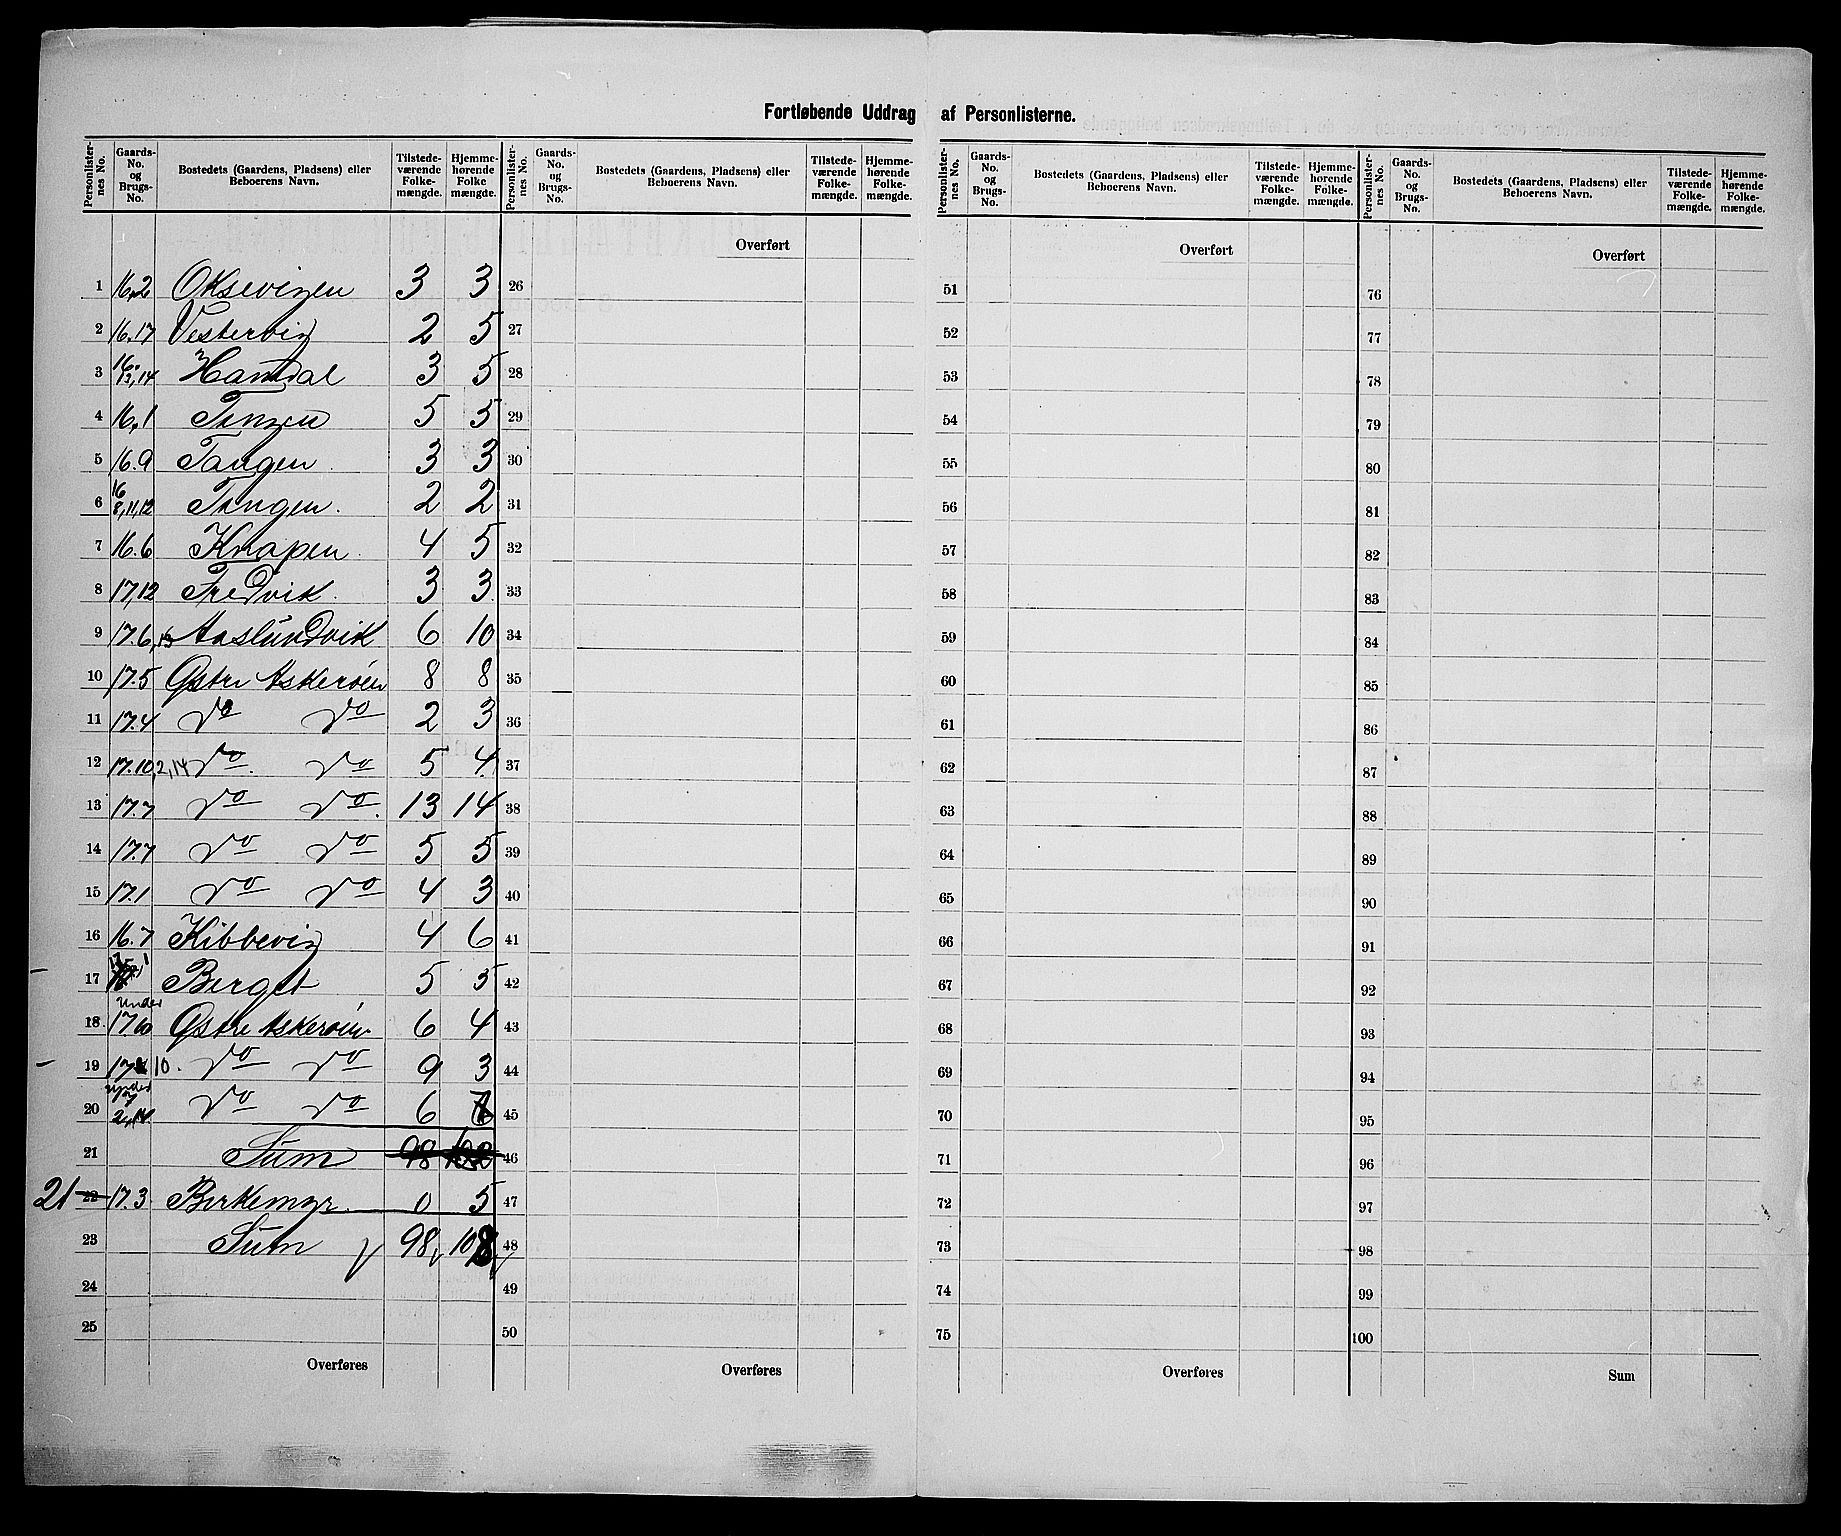 Fortløbende Uddrag af Personlisterne.
Personlister-nes No. | Gaards-No. og Brugs-No. | Bostedets (Gaardens, Pladsens) eller Beboerens Navn. | Tilstede-værende Folke-mængde. | Hjemme-hørende Folke mængde.
Personlister-nes No. | Gaards-No. og Brugs-No. | Bostedets (Gaardens, Pladsens) eller Beboerens Navn. | Tilstede-værende Folke-mængde. | Hjemme-hørende Folke-mængde.
Personlister-nes No. | Gaards-No. og Brugs-No. | Bostedets (Gaardens, Pladsens) eller Beboerens Navn. | Tilstede-værende Folke-mængde. | Hjemme-hørende Folke-mængde.
Personlister-nes No. | Gaards-No. og Brugs-No. | Bostedets (Gaardens, Pladsens) eller Beboerens Navn. | Tilstede-værende Folke-mængde. | Hjemme-hørende Folke-mængde.
Overført Overført Overført
1 16,2 Oksevigen 3 3 26 51 76
2 16,17 Vestervig 2 5 27 52 77
3 16. 13,14 Hamdal 3 5 28 53 78
4 16,1 Tangen 5 5 29 54 79
5 16.9 Tangen 3 3 30 55 80
6 16 8,11,12 Tangen. 2 2 31 56 81
7 16.6 Knapen. 4 5 32 57 82
8 17,12 Fredvik. 3 3 33 58 83
9 17.6,13 Aaslundvik 6 10 34 59 84
10 17.5 Østre Askerøen 8 8 35 60 85
11 17.4 Do Do 2 3 36 61 86
12 17.10,2,14 Do. Do 5 4 37 62 87
13 17.7 Do Do. 13 14 38 63 88
14 17.7 Do Do 5 5 39 64 89
15 17.1 Do Do 4 3 40 65 90
16 16.7 Kibbevig 4 6 41 66 91
17 Berget 5 5 42 67 92
18 under 17.10 Østre Askerøen 6 4 43 68 93
19 17 10. Do Do 9 3 44 69 94
20 under 17 2,14. Do Do 6 7 45 70 95
21 Sum 98 46 71 96
21 22 17.3 Birkemyr. 0 5 47 72 97
23 Sum 98, 108, 48 73 98
24 49 74 99
25 50 75 100
Overføres Overføres Overføres Sum